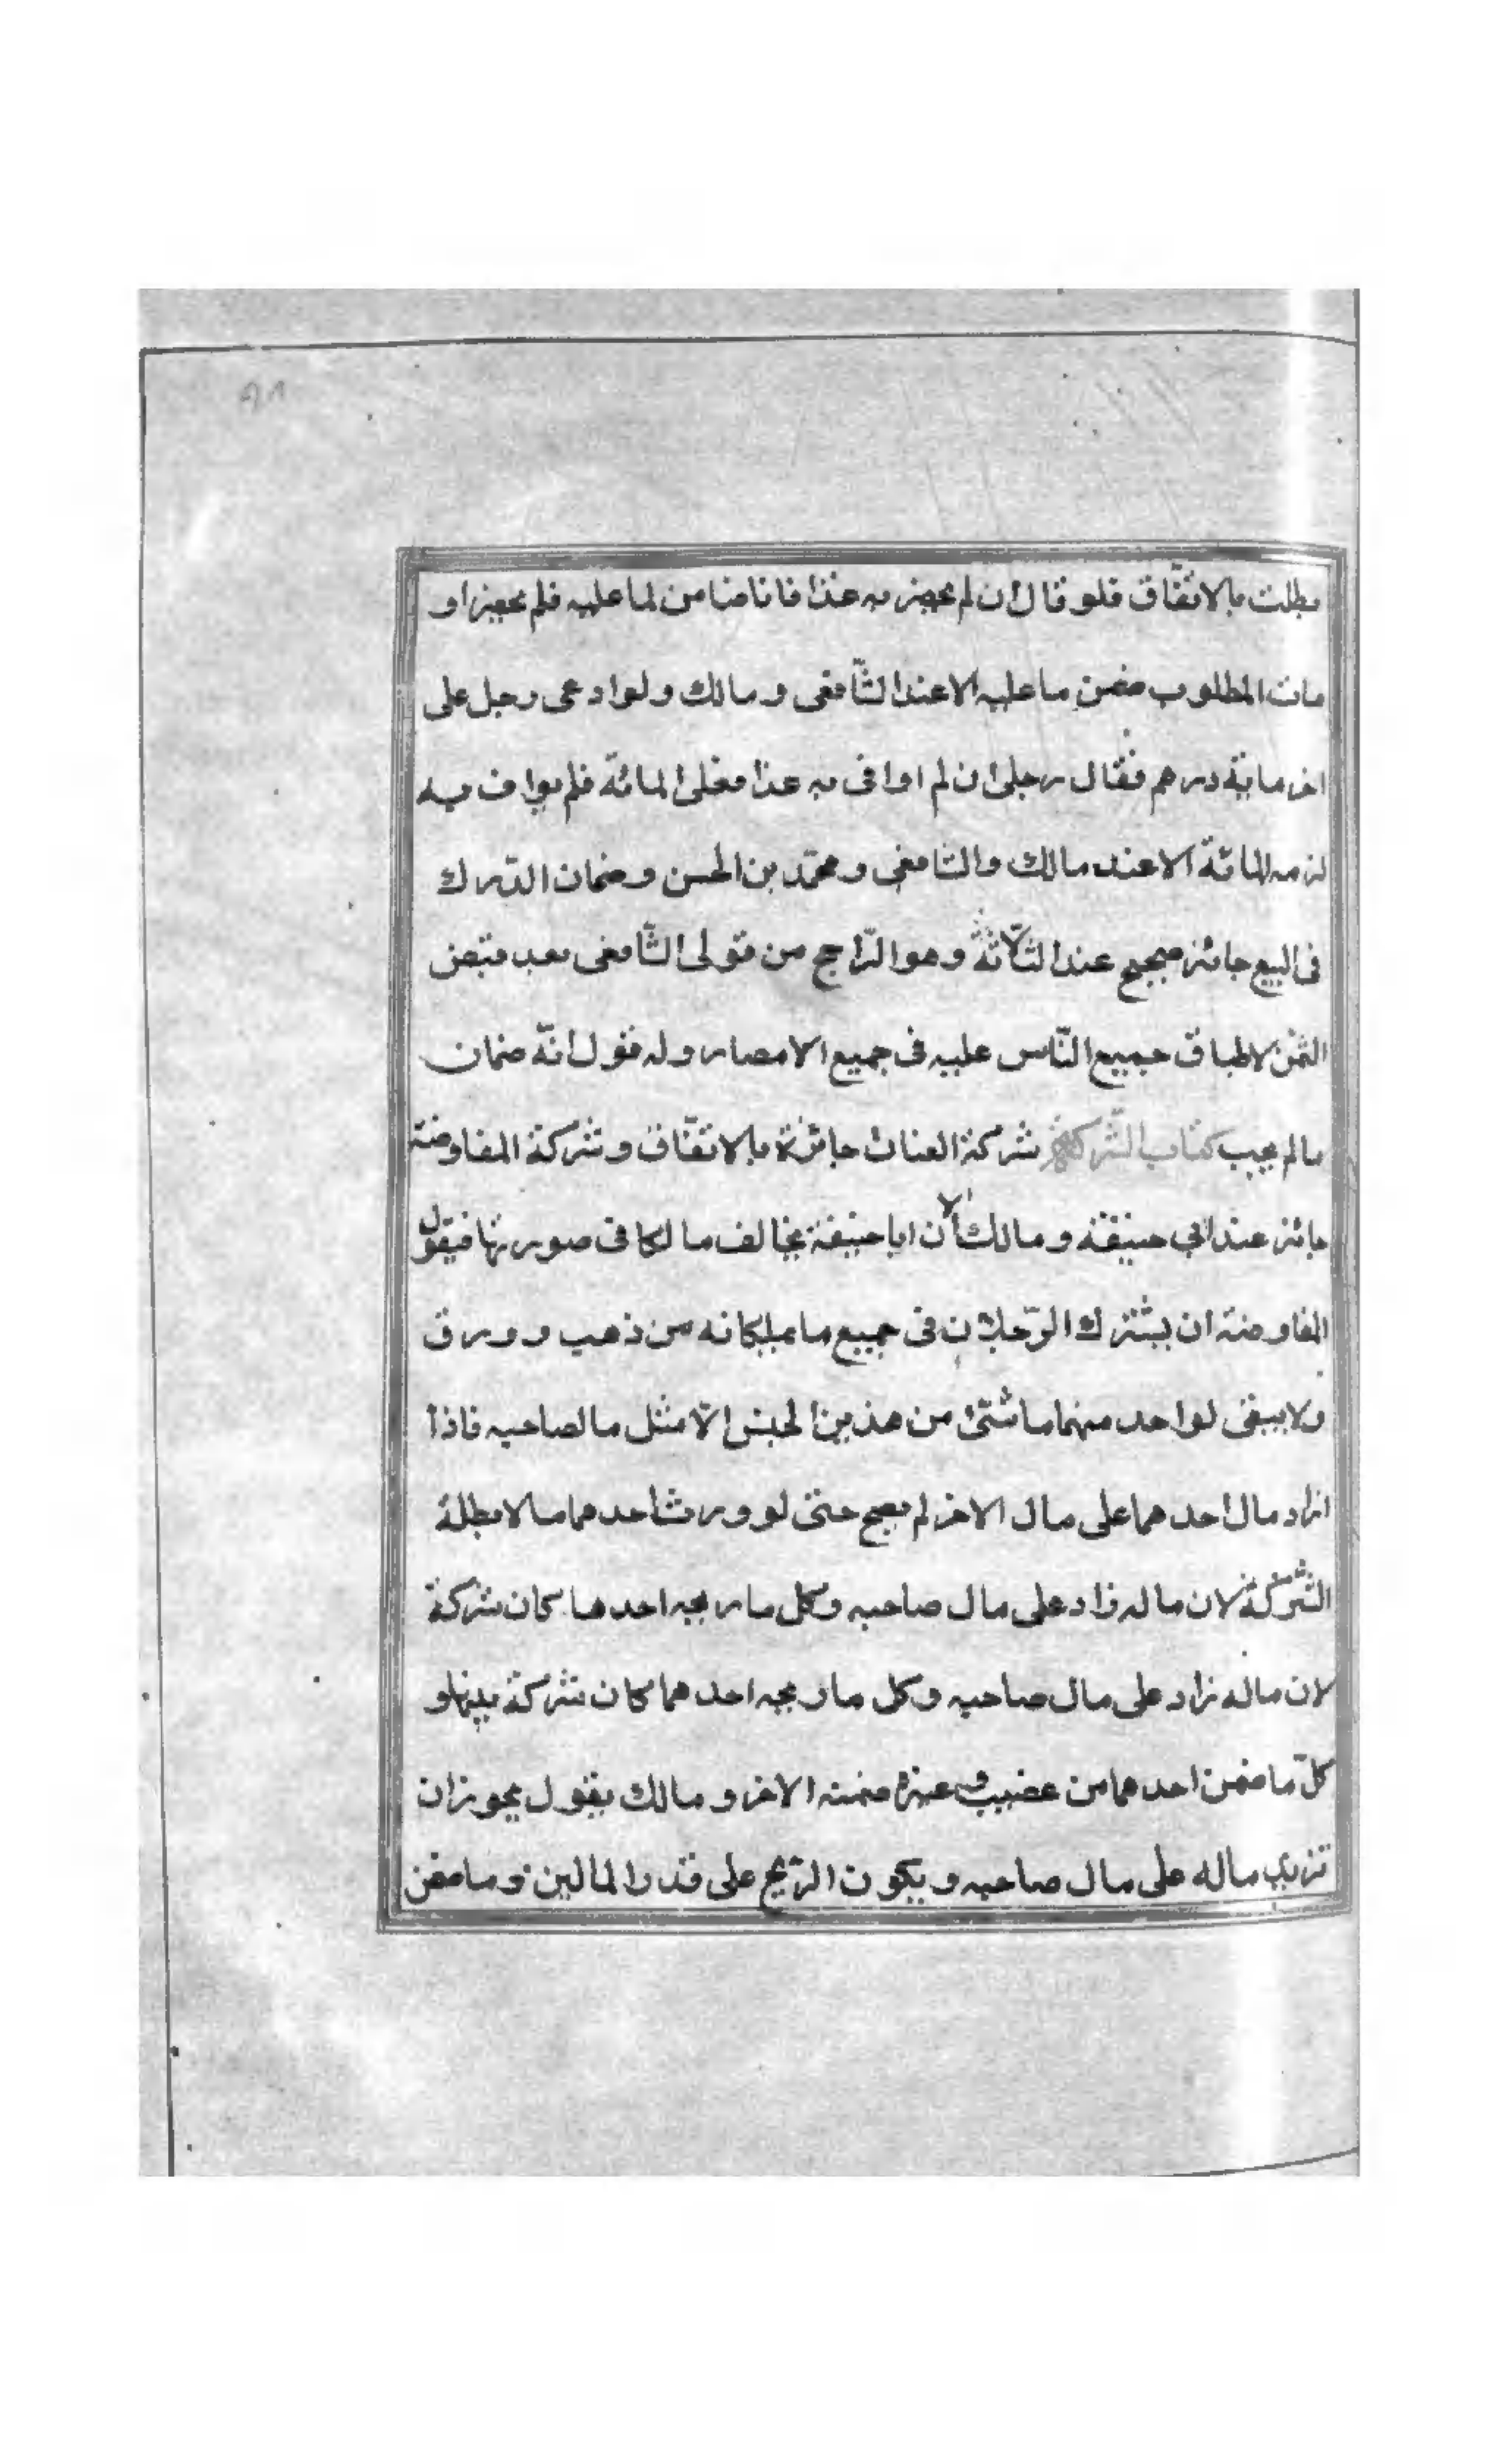 بطلت بالاتفّاق فلو قال ان لم يحضر به غدا فانا ضامن لما عليه فلم يحضر او
مات المطلوب ضمن ما عليه الا عند الشّافعى ومالك ولو ادعى رجل على
اخر ماية درهم فقال رجل ان لم اوافى به غدا فعلى المائة فلم يواف به
لزمه المائة الا عند مالك والشافعى ومحمّد بن الحسن وضمان الدّرك
فى البيع جائز صحيح عند الثلاثة وهو الرّاجح من قولى الشّافعى بعد قبض
الثمن لاطباق جميع النّاس عليه فى جميع الامصار وله قول انّه ضمان
ما لم يجب كتاب الشّركة شركة العنان جائزة بالاتفّاق وشركة المفاوضة
جائز عند ابي حنيفة ومالك الا ان ابا حنيفة يخالف مالكا فى صورتها فيقول
المفاوضة ان يشترك الرّجلان فى جميع ما يملكانه من ذهب وورق
ولا يبقى لواحد منهما ما شئ من هذين الجنس الاّ مثل ما لصاحبه فاذا
ازاد مال احدهما على مال الاخر لم يصح حتى لو ورث احدهما مالا بطلة
الشّركة لان ماله زاد على مال صاحبه وكل ما ربحه احدهما كان شركة
لان ماله زاد على مال صاحبه وكل ما ربحه احدهما كان شركة بينهما و
كلّ ما ضمن احدهما من غصب وغيره ضمنه الاخر ومالك يقول يجوز ان
تزيد ماله على مال صاحبه ويكون الرّبح على قدر المالين وما ضمن